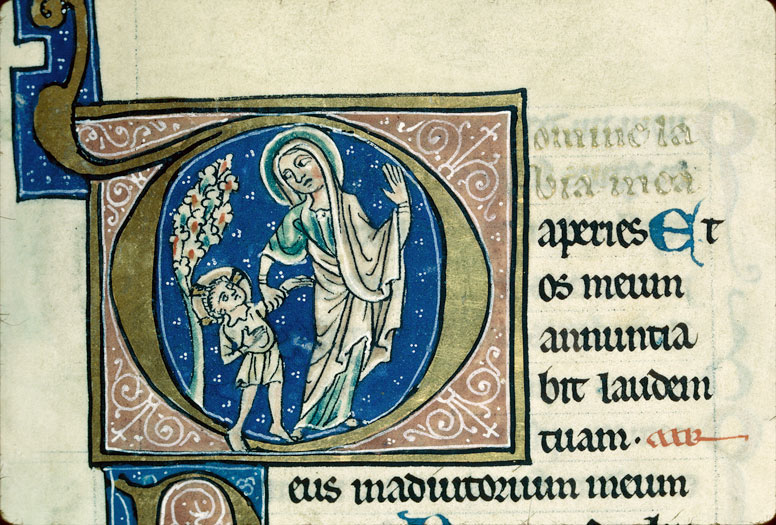 omine la
bia mea
aperies Et
os meum
annuntia
bit laudem
tuam.
eus in adiutorium meum